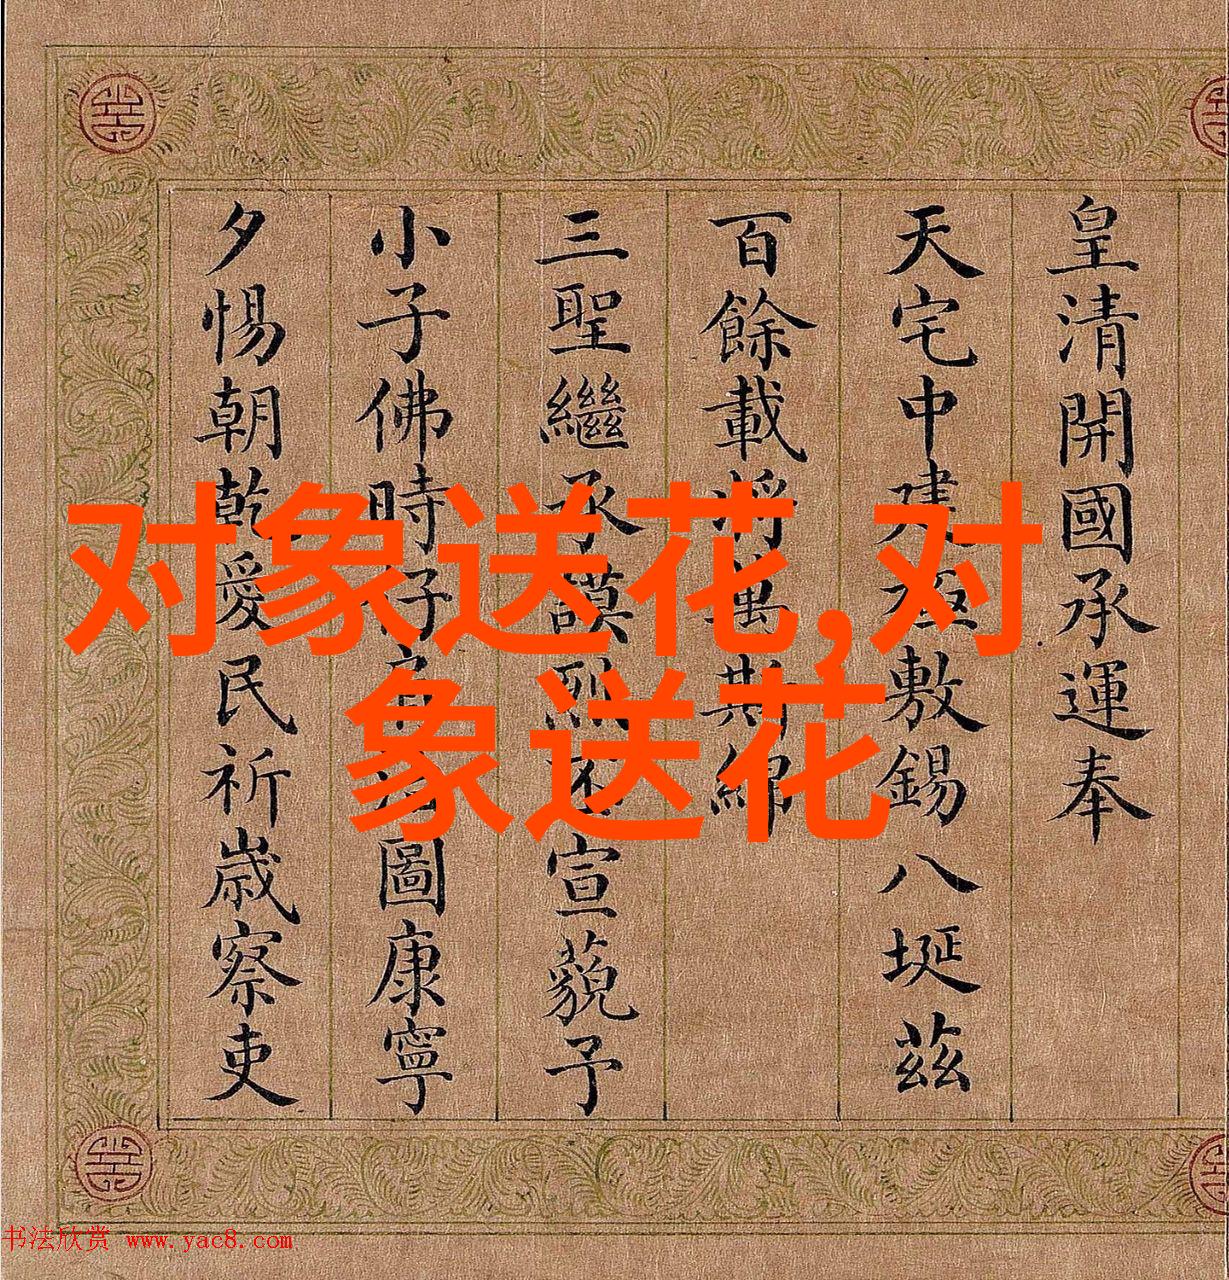 对象送花,对
象送花
皇清開國承運奉
天宅中建敷錫八埏茲
百餘載將萬斯綿
三聖繼承謨烈宣藐予
小子佛時仔圖康寧
夕惕朝乾愛民祈歲察吏
书法欣赏 www.yac8.com